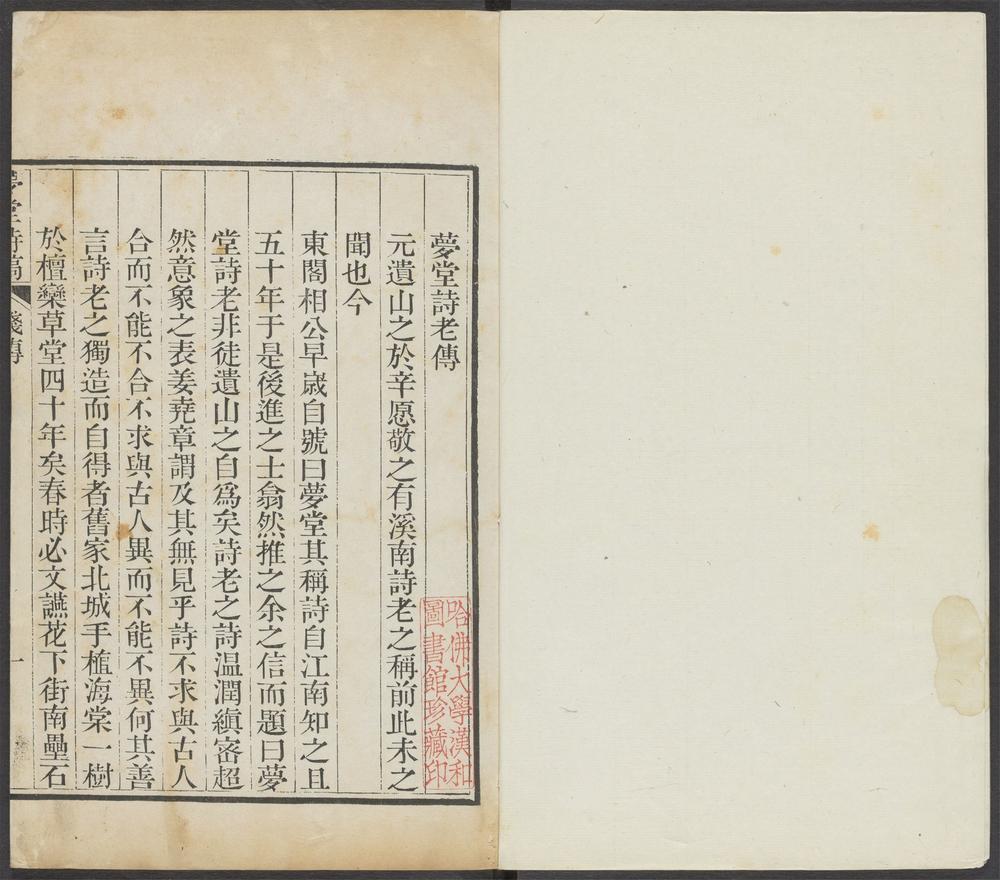 夢堂詩老傳
元遺山之於辛愿敬之有溪南詩老之稱前此未之
聞也今
東閣相公早歲自號曰夢堂其稱詩自江南知之且
五十年于是後進之士翕然推之余之信而題曰夢
堂詩老非徒遺山之自爲矣詩老之詩温潤縝密超
然意象之表姜堯章謂及其無見乎詩不求與古人
合而不能不合不求與古人異而不能不異何其善
言詩老之獨造而自得者舊家北城手植海棠一樹
於檀欒草堂四十年矣春時必文讌花下街南壘石
夢堂詩稿
傳
一
哈佛大學漢和
圖書館珍藏印